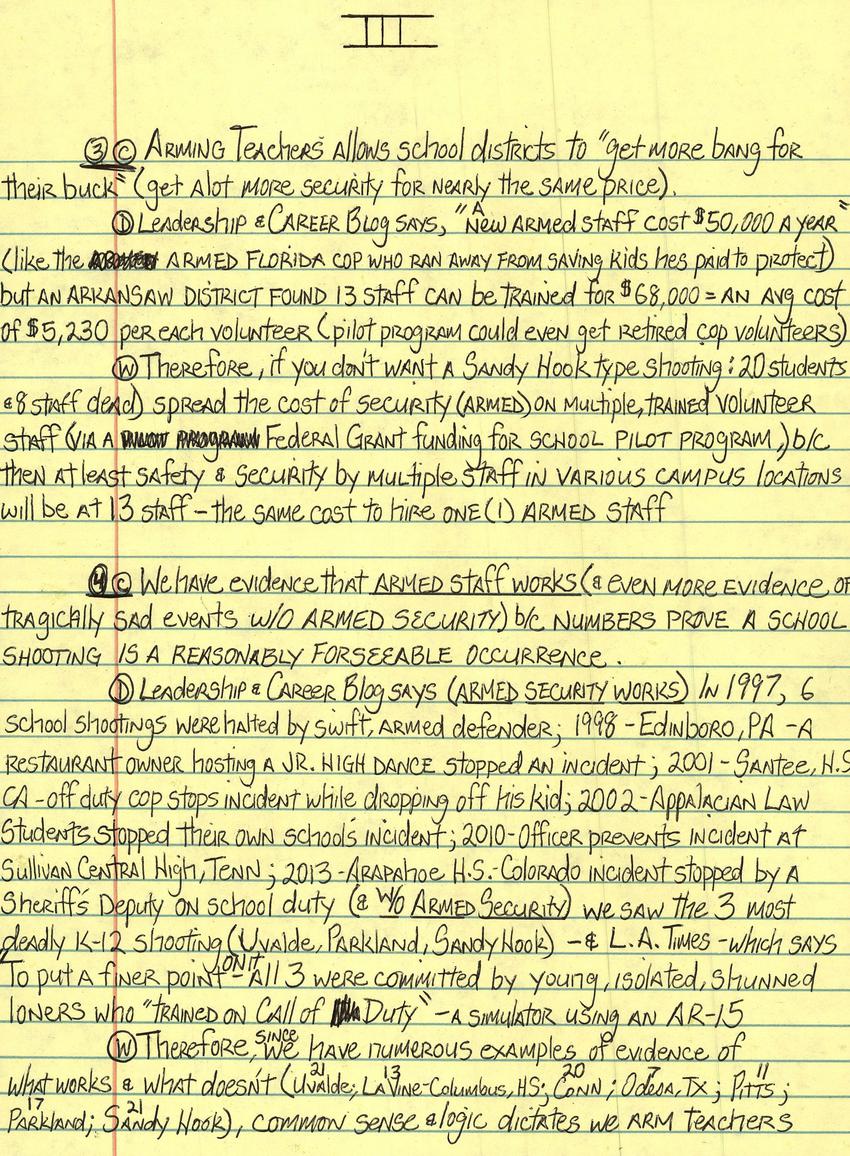 III
③ Ⓒ ARMING TEACHERS ALLOWS school districts to "get MORE bANG for
their buck" (get Alot MORE SECURITY for NEARLY the SAME price).
Ⓓ Leadership & CAREER Blog SAYS, "A New ARMED STAFF COST $50,000 A YEAR"
(like the ARMED FLORIDA COP WHO RAN AWAY FROM SAVING kids hes paid to protect)
but AN ARKANSAW DISTRICT FOUND 13 STAFF CAN be TRAINED for $68,000 = AN AVG COST
of $5,230 per each volunteer (pilot program could even get retired cop volunteers)
Ⓦ Therefore, if you don't WANT A SANDY HOOK type shooting: 20 students
& 8 STAFF dead) spread the COST of SECURITY (ARMED) ON MULTIPLE, TRAINED VOLUNTEER
STAFF (VIA A Federal GRANT funding for SCHOOL PILOT PROGRAM,) b/c
then AT least SAFETY & SECURITY by MULTIPLE STAFF IN VARIOUS CAMPUS locations
will be AT 13 STAFF – the SAME COST to hire ONE (1) ARMED STAFF
④ Ⓒ We have evidence that ARMED STAFF WORKS (& EVEN MORE EVIDENCE OF
TRAGICALLY SAD EVENTS W/O ARMED SECURITY) b/c NUMBERS PROVE A SCHOOL
SHOOTING IS A REASONABLY FORSEEABLE OCCURRENCE.
Ⓓ Leadership & CAREER Blog SAYS (ARMED SECURITY WORKS) IN 1997, 6
school shootings were halted by swift, ARMED defender; 1998 – Edinboro, PA – A
RESTAURANT OWNER hosting A JR. HIGH DANCE stopped AN incident; 2001 – SANTEE, H.S
CA – off duty cop stops incident while dropping off his kid; 2002 – APPALACIAN LAW
Students stopped their own school's incident; 2010 – Officer prevents incident AT
Sullivan Central High, TENN; 2013 – ARAPAHOE H.S. – Colorado incident stopped by A
Sheriff's Deputy ON school duty (& W/O ARMED SECURITY) we saw the 3 most
deadly K-12 shooting (Uvalde, PARKLAND, SANDY HOOK) – & L.A. TIMES – which SAYS
"To put A finer point ON IT – All 3 were committed by young, isolated, shunned
loners who "TRAINED ON CALL of Duty" – A SIMULATOR using AN AR-15
Ⓦ Therefore, SINCE We have numerous examples of evidence of
WHAT WORKS & WHAT doesn't (Uvalde 21; LAVINE-Columbus, HS 13; CONN 20; Odesa, TX 7; PITTS 11;
PARKLAND 17; SANDY HOOK 21), COMMON SENSE & logic dictates we ARM TEACHERS